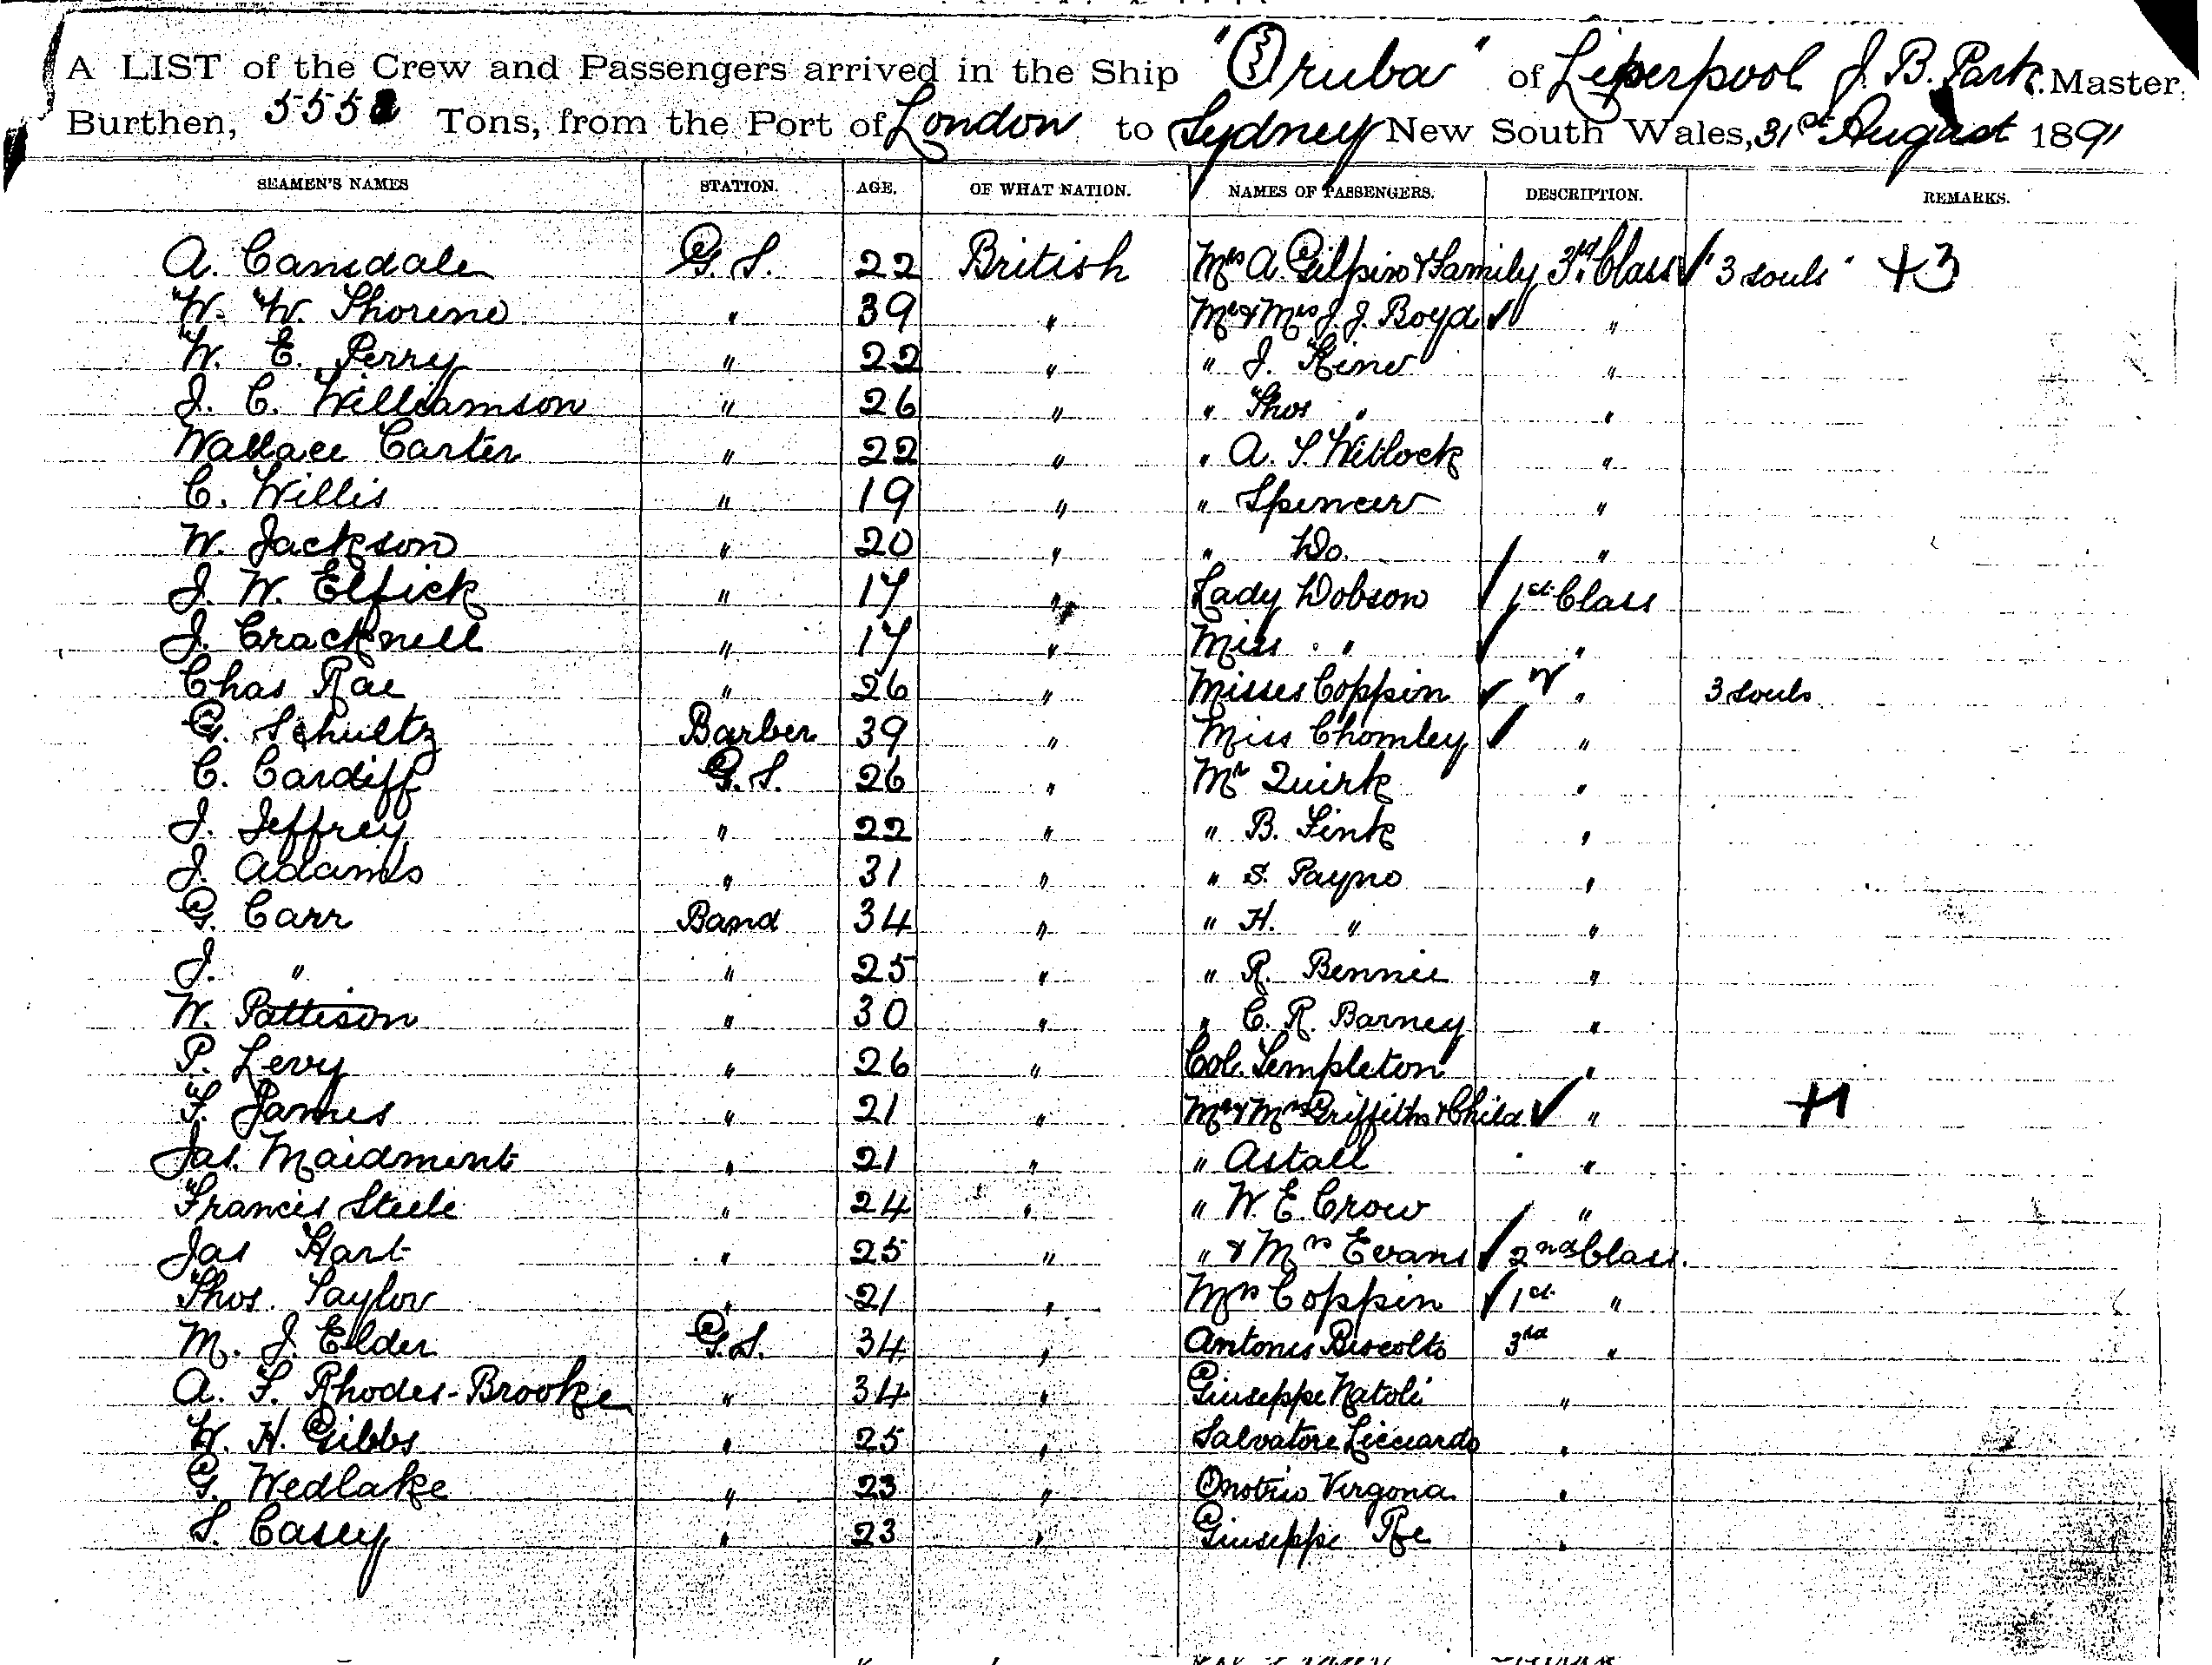 A LIST of the Crew and Passengers arrived in the Ship "Oruba" of Liverpool J. B. Park. Master,
Burthen, 555 Tons, from the Port of London to Sydney New South Wales, 31st August 1891
SEAMEN'S NAMES STATION. AGE. OF WHAT NATION. NAMES OF PASSENGERS. DESCRIPTION. REMARKS.
A. Cansdale G. S. 22 British Mrs A. Gilpin & Family 3rd Class "3 souls" +3
W. W. Thorene " 39 " Mr & Mrs J. J. Boyd "
W. E. Perry " 22 " " J. Hine "
J. C. Williamson " 26 " " Thos " "
Wallace Carter " 22 " " A. S. Witlock "
C. Willis " 19 " " Spencer "
W. Jackson " 20 " " Do. "
J. W. Elfick " 17 " Lady Dobson 1st Class
J. Cracknell " 17 " Miss " "
Chas Rae " 26 " Misses Coppin " 3 souls
G. Schultz Barber 39 " Miss Chomley "
C. Cardiff G. S. 26 " Mr Quirk "
J. Jeffrey " 22 " " B. Fink "
J. Adams " 31 " " S. Payne "
G. Carr Band 34 " " H. " "
J. " " 25 " " R. Bennie "
W. Pattison " 30 " " C. R. Barney "
P. Levy " 26 " Col. Templeton "
F. James " 21 " Mr & Mrs Griffiths & Child " +1
Jas. Maidment " 21 " " Astall "
Francis Steele " 24 " " W. E. Crow "
Jas Hart " 25 " " & Mrs Evans 2nd Class.
Thos. Taylor " 21 " Mrs Coppin 1st "
M. J. Elder G. S. 34 " Antonis 3rd "
A. F. Rhodes-Brooke " 34 " Giuseppe Natoli "
W. H. Gibbs " 25 " Salvatore Licciardo "
G. Wedlake " 23 " Onotrio Virgona "
S. Casey " 23 " Giuseppe "